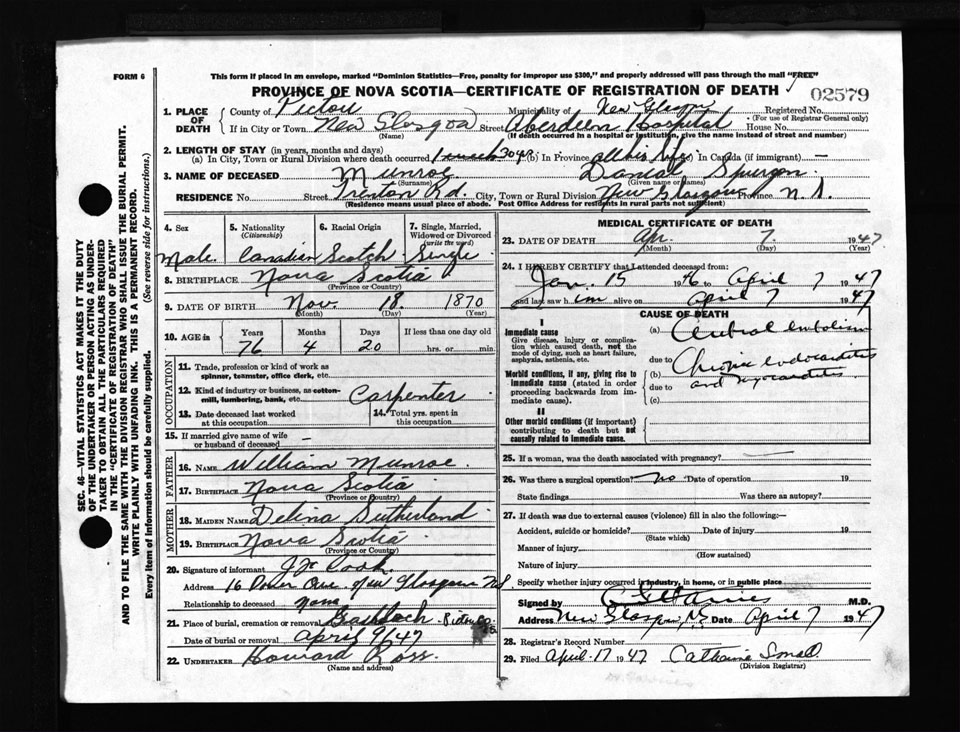 FORM 6
This form if placed in an envelope, marked "Dominion Statistics—Free, penalty for improper use $300," and properly addressed will pass through the mail "FREE"
PROVINCE OF NOVA SCOTIA—CERTIFICATE OF REGISTRATION OF DEATH
02579
SEC. 46—VITAL STATISTICS ACT MAKES IT THE DUTY
OF THE UNDERTAKER OR PERSON ACTING AS UNDER-
TAKER TO OBTAIN ALL THE PARTICULARS REQUIRED
IN THE "CERTIFICATE OF REGISTRATION OF DEATH"
AND TO FILE THE SAME WITH THE DIVISION REGISTRAR WHO SHALL ISSUE THE BURIAL PERMIT.
WRITE PLAINLY WITH UNFADING INK. THIS IS A PERMANENT RECORD.
Every item of information should be carefully supplied. (See reverse side for instructions.)
1. PLACE OF DEATH
County of Pictou Municipality of New Glasgow Registered No.
(For use of Registrar General only)
If in City or Town New Glasgow Street Aberdeen Hospital House No.
(Name) (If death occurred in a hospital or institution, give the name instead of street and number)
2. LENGTH OF STAY (in years, months and days)
(a) In City, Town or Rural Division where death occurred (b) In Province all his life In Canada (if immigrant) —
3. NAME OF DECEASED Munroe Danial Spurgon
(Surname) (Given name or names)
RESIDENCE No. Street Trenton Rd. City, Town or Rural Division New Glasgow Province N.S.
(Residence means usual place of abode. Post Office Address for residents in rural parts not sufficient)
4. Sex Male
5. Nationality (Citizenship) Canadian
6. Racial Origin Scotch
7. Single, Married, Widowed or Divorced (write the word) Single
8. BIRTHPLACE Nova Scotia
(Province or Country)
9. DATE OF BIRTH Nov 18 1870
(Month) (Day) (Year)
10. AGE in Years Months Days If less than one day old
76 4 20 hrs. or min.
OCCUPATION
11. Trade, profession or kind of work as spinner, teamster, office clerk, etc.
12. Kind of industry or business, as cotton-mill, lumbering, bank, etc. Carpenter
13. Date deceased last worked at this occupation
14. Total yrs. spent in this occupation
15. If married give name of wife or husband of deceased —
FATHER
16. NAME William Munroe
17. BIRTHPLACE Nova Scotia
(Province or Country)
MOTHER
18. MAIDEN NAME Delina Sutherland
19. BIRTHPLACE Nova Scotia
(Province or Country)
20. Signature of informant Cook
Address 16 Ave. New Glasgow N.S.
Relationship to deceased none
21. Place of burial, cremation or removal Gairloch Pictou Co. N.S.
Date of burial or removal April 9/47
22. UNDERTAKER Howard Ross
(Name and address)
MEDICAL CERTIFICATE OF DEATH
23. DATE OF DEATH Apr. 7. 1947
(Month) (Day) (Year)
24. I HEREBY CERTIFY that I attended deceased from:
Jan. 15 1946 to April 7 1947
and last saw him alive on April 7 1947
CAUSE OF DEATH
I
Immediate cause
Give disease, injury or complication which caused death, not the mode of dying, such as heart failure, asphyxia, asthenia, etc.
(a) Cerebral embolism
due to
Morbid conditions, if any, giving rise to immediate cause (stated in order proceeding backwards from immediate cause).
(b) Chronic endocarditis and myocarditis
due to
(c)
II
Other morbid conditions (if important) contributing to death but not causally related to immediate cause.
25. If a woman, was the death associated with pregnancy? —
26. Was there a surgical operation? No Date of operation 19
State findings Was there an autopsy?
27. If death was due to external causes (violence) fill in also the following:—
Accident, suicide or homicide? Date of injury 19
(State which)
Manner of injury
(How sustained)
Nature of injury
Specify whether injury occurred in industry, in home, or in public place
Signed by M.D.
Address New Glasgow, N.S. Date April 7 1947
28. Registrar's Record Number
29. Filed April 17 1947 Catharine Small
(Division Registrar)